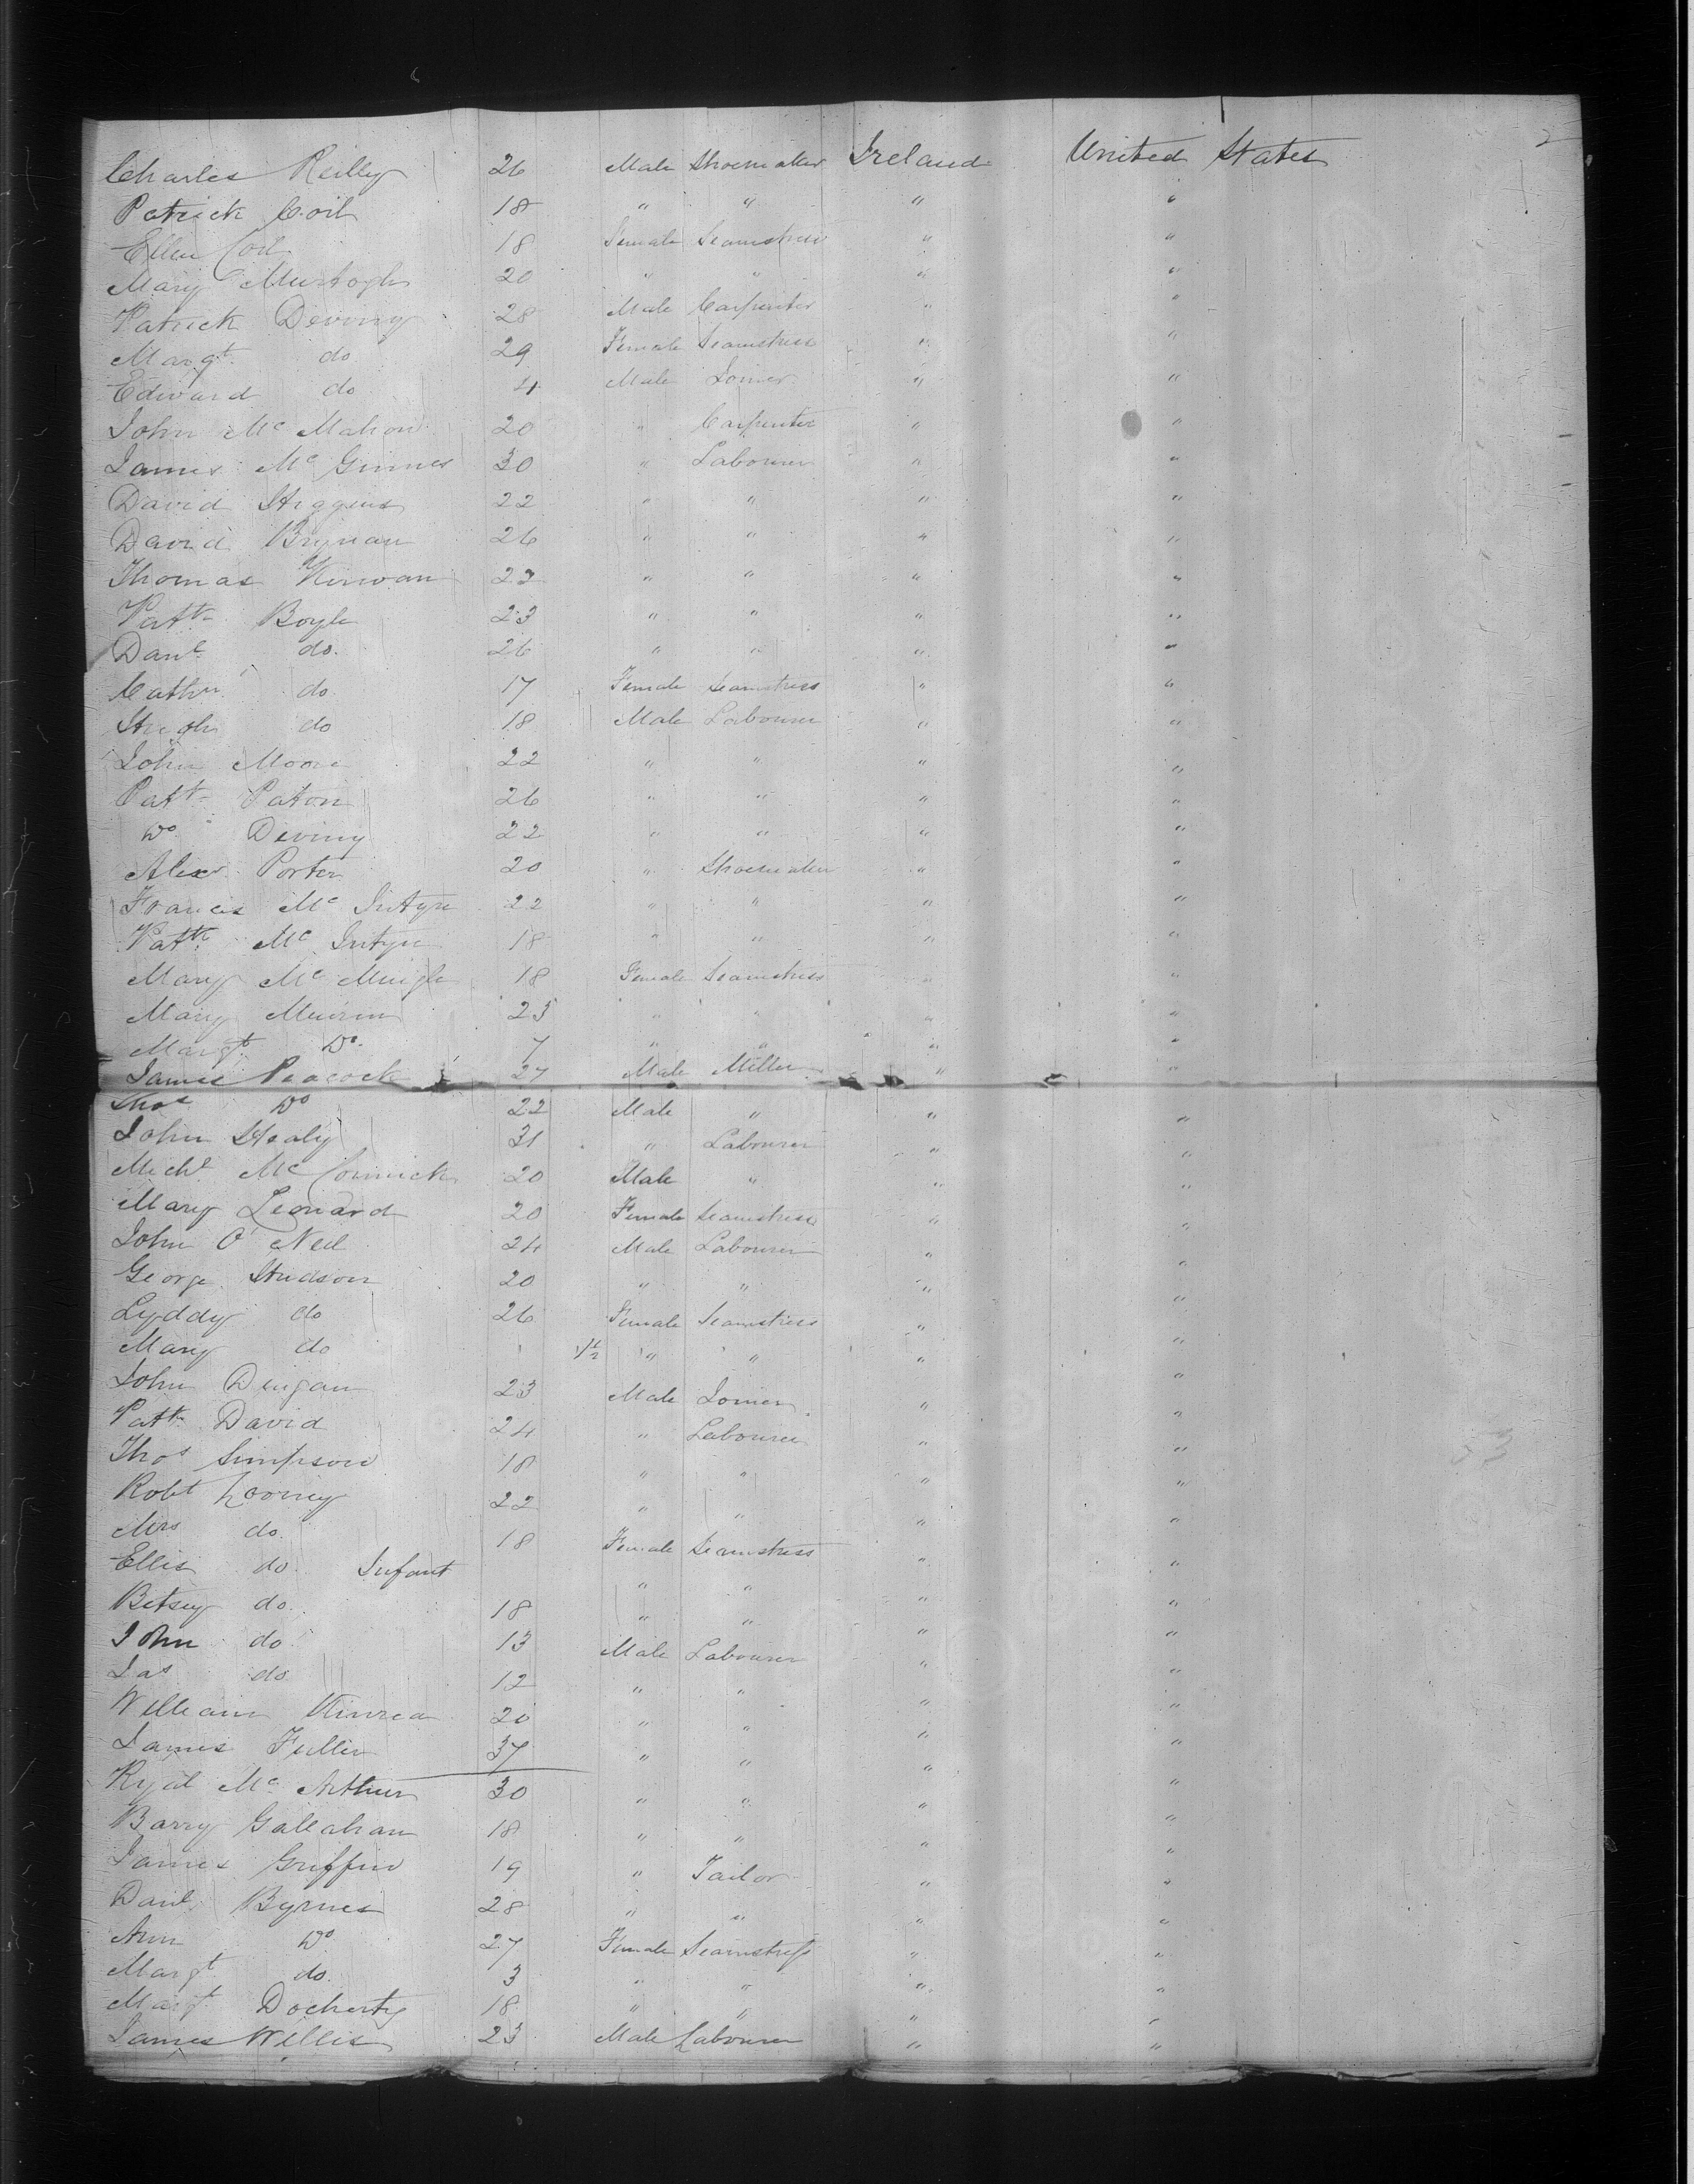 2
Charles Reilly 26 Male Shoemaker Ireland United States
Patrick Coil 18 " " " "
Ellen Coil 18 Female Seamstress " "
Mary Murtogh 20 " " " "
Patrick Deviny 28 Male Carpenter " "
Margt do 29 Female Seamstress " "
Edward do 21 Male Joiner " "
John Mc Mahon 20 " Carpenter " "
James Mc Ginnes 30 " Labourer " "
David Higgens 22 " " " "
David Brynan 26 " " " "
Thomas Kirwan 22 " " " "
Patk Boyle 23 " " " "
Danl do. 26 " " " "
Cathn do 17 Female Seamstress " "
Hugh do 18 Male Labourer " "
John Moore 22 " " " "
Patk Paton 26 " " " "
Do Deviny 22 " " " "
Alexr Porter 20 " Shoemaker " "
Francis Mc Intyre 22 " " " "
Patk Mc Intyre 18 " " " "
Mary Mc 18 Female Seamstress " "
Mary 23 " " " "
Margt Do. 7 " " " "
James Peacock 27 Male Miller " "
Thos Do 22 Male " " "
John Healy 31 " Labourer " "
Michl Mc Cormick 20 Male " " "
Mary Leonard 20 Female Seamstress " "
John O' Neil 24 Male Labourer " "
George Hudson 20 " " " "
Lyddy do 26 Female Seamstress " "
Mary do 1½ " " " "
John Dengan 23 Male Joiner " "
Patk David 24 " Labourer " "
Thos Simpson 18 " " " "
Robt Looney 22 " " " "
Mrs do. 18 Female Seamstress " "
Ellis do. Infant " " " "
Betsey do. 18 " " " "
John do 13 Male Labourer " "
Jas do 12 " " " "
William Kinrea 20 " " " "
James Fuller 37 " " " "
Mc Arthur 30 " " " "
Barry Gallahan 18 " " " "
James Griffin 19 " Tailor " "
Danl Byrnes 28 " " " "
Ann Do 27 Female Seamstress " "
Margt do. 3 " " " "
Margt Docherty 18 " " " "
James Willis 23 Male Labourer " "